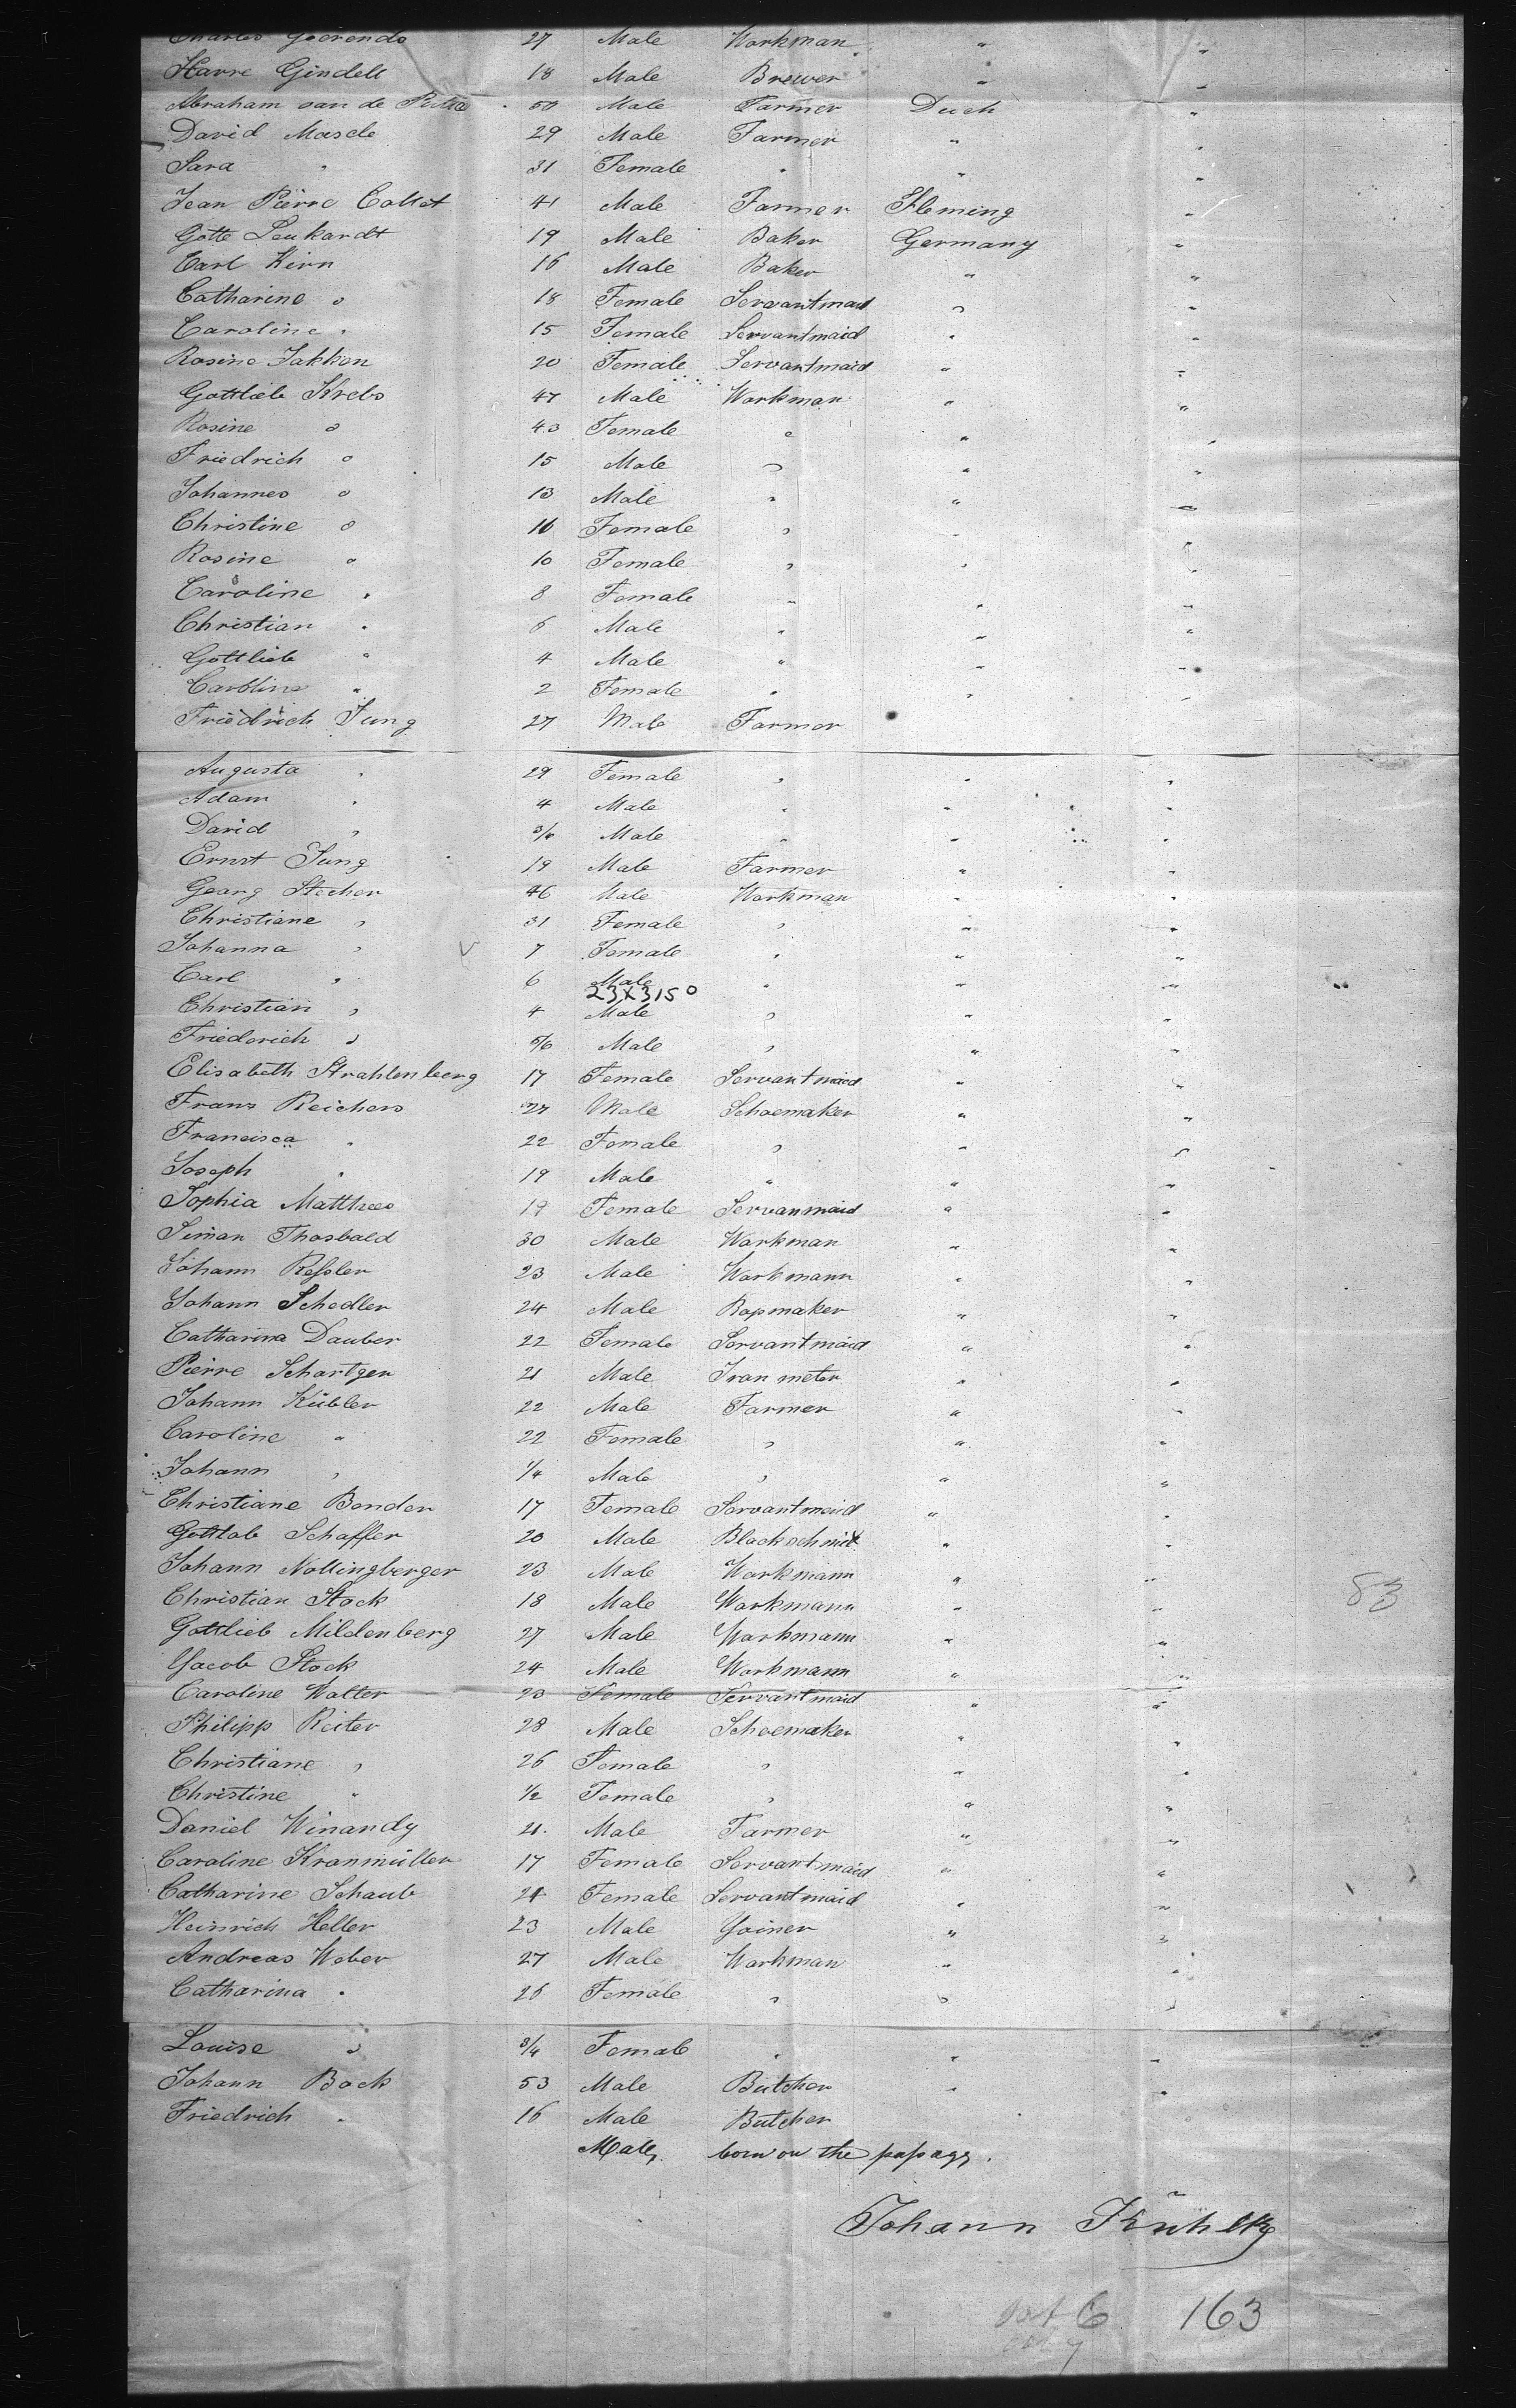 Charles 27 Male Workman "
Harre Gindell 18 Male Brewer " "
Abraham van de 50 Male Farmer Duch "
David Mascle 29 Male Farmer " "
Sara " 31 Female " " "
Jean Pierre Collet 41 Male Farmer Fleming "
Gotte Leukardt 19 Male Baker Germany "
Carl Kirn 16 Male Baker " "
Catharine " 18 Female Servantmaid " "
Caroline " 15 Female Servantmaid " "
Rosine Jakkon 20 Female Servantmaid " "
Gottlieb Krebs 47 Male Workman " "
Rosine " 43 Female " " "
Friedrich " 15 Male " " "
Johannes " 13 Male " " "
Christine " 16 Female " " "
Rosine " 10 Female " " "
Caroline " 8 Female " " "
Christian " 6 Male " " "
Gottlieb " 4 Male " " "
Carolina " 2 Female " " "
Friedrich Jung 27 Male Farmer
Augusta " 29 Female " " "
Adam " 4 Male " " "
David " 3/4 Male " " "
Ernst Jung 19 Male Farmer " "
Georg Stecher 46 Male Workman " "
Christiane " 31 Female " " "
Johanna " 7 Female " " "
Carl " 6 Male " " "
23X3150
Christian " 4 Male " " "
Friederich " 5/6 Male " " "
Elisabeth Strahlenberg 17 Female Servantmaid " "
Franz Reichers 27 Male Schoemaker " "
Francisca " 22 Female " " "
Joseph " 19 Male " " "
Sophia Matthees 19 Female Servanmaid " "
Siman Thosbald 30 Male Workman " "
Johann Keßler 23 Male Workmann " "
Johann Schedler 24 Male Ropmaker " "
Catharina Dauber 22 Female Servantmaid " "
Pierre Schartgen 21 Male Iran meter " "
Johann Kübler 22 Male Farmer " "
Caroline " 22 Female " " "
Johann " 1/4 Male " " "
Christiane Bender 17 Female Servantmeid " "
Gottlob Schaffer 20 Male Blackschmit " "
Johann Nollingberger 23 Male Workmann " "
Christian Stock 18 Male Workmann " "
83
Gottlieb Mildenberg 27 Male Workmann " "
Jacob Stock 24 Male Workmann " "
Caroline Walter 23 Female Servantmaid " "
Philipp Reiter 28 Male Schoemaker " "
Christiane " 26 Female " " "
Christine " 1/2 Female " " "
Daniel Winandy 21 Male Farmer " "
Caroline Kranmüller 17 Female Servantmaid " "
Catharine Schaub 21 Female Servantmaid " "
Heinrich Heller 23 Male Joiner " "
Andreas Weber 27 Male Workman " "
Catharina " 26 Female " " "
Louise " 3/4 Female " " "
Johann Bock 53 Male Butcher " "
Friedrich " 16 Male Butcher
Male, born on the passage.
Johann
163